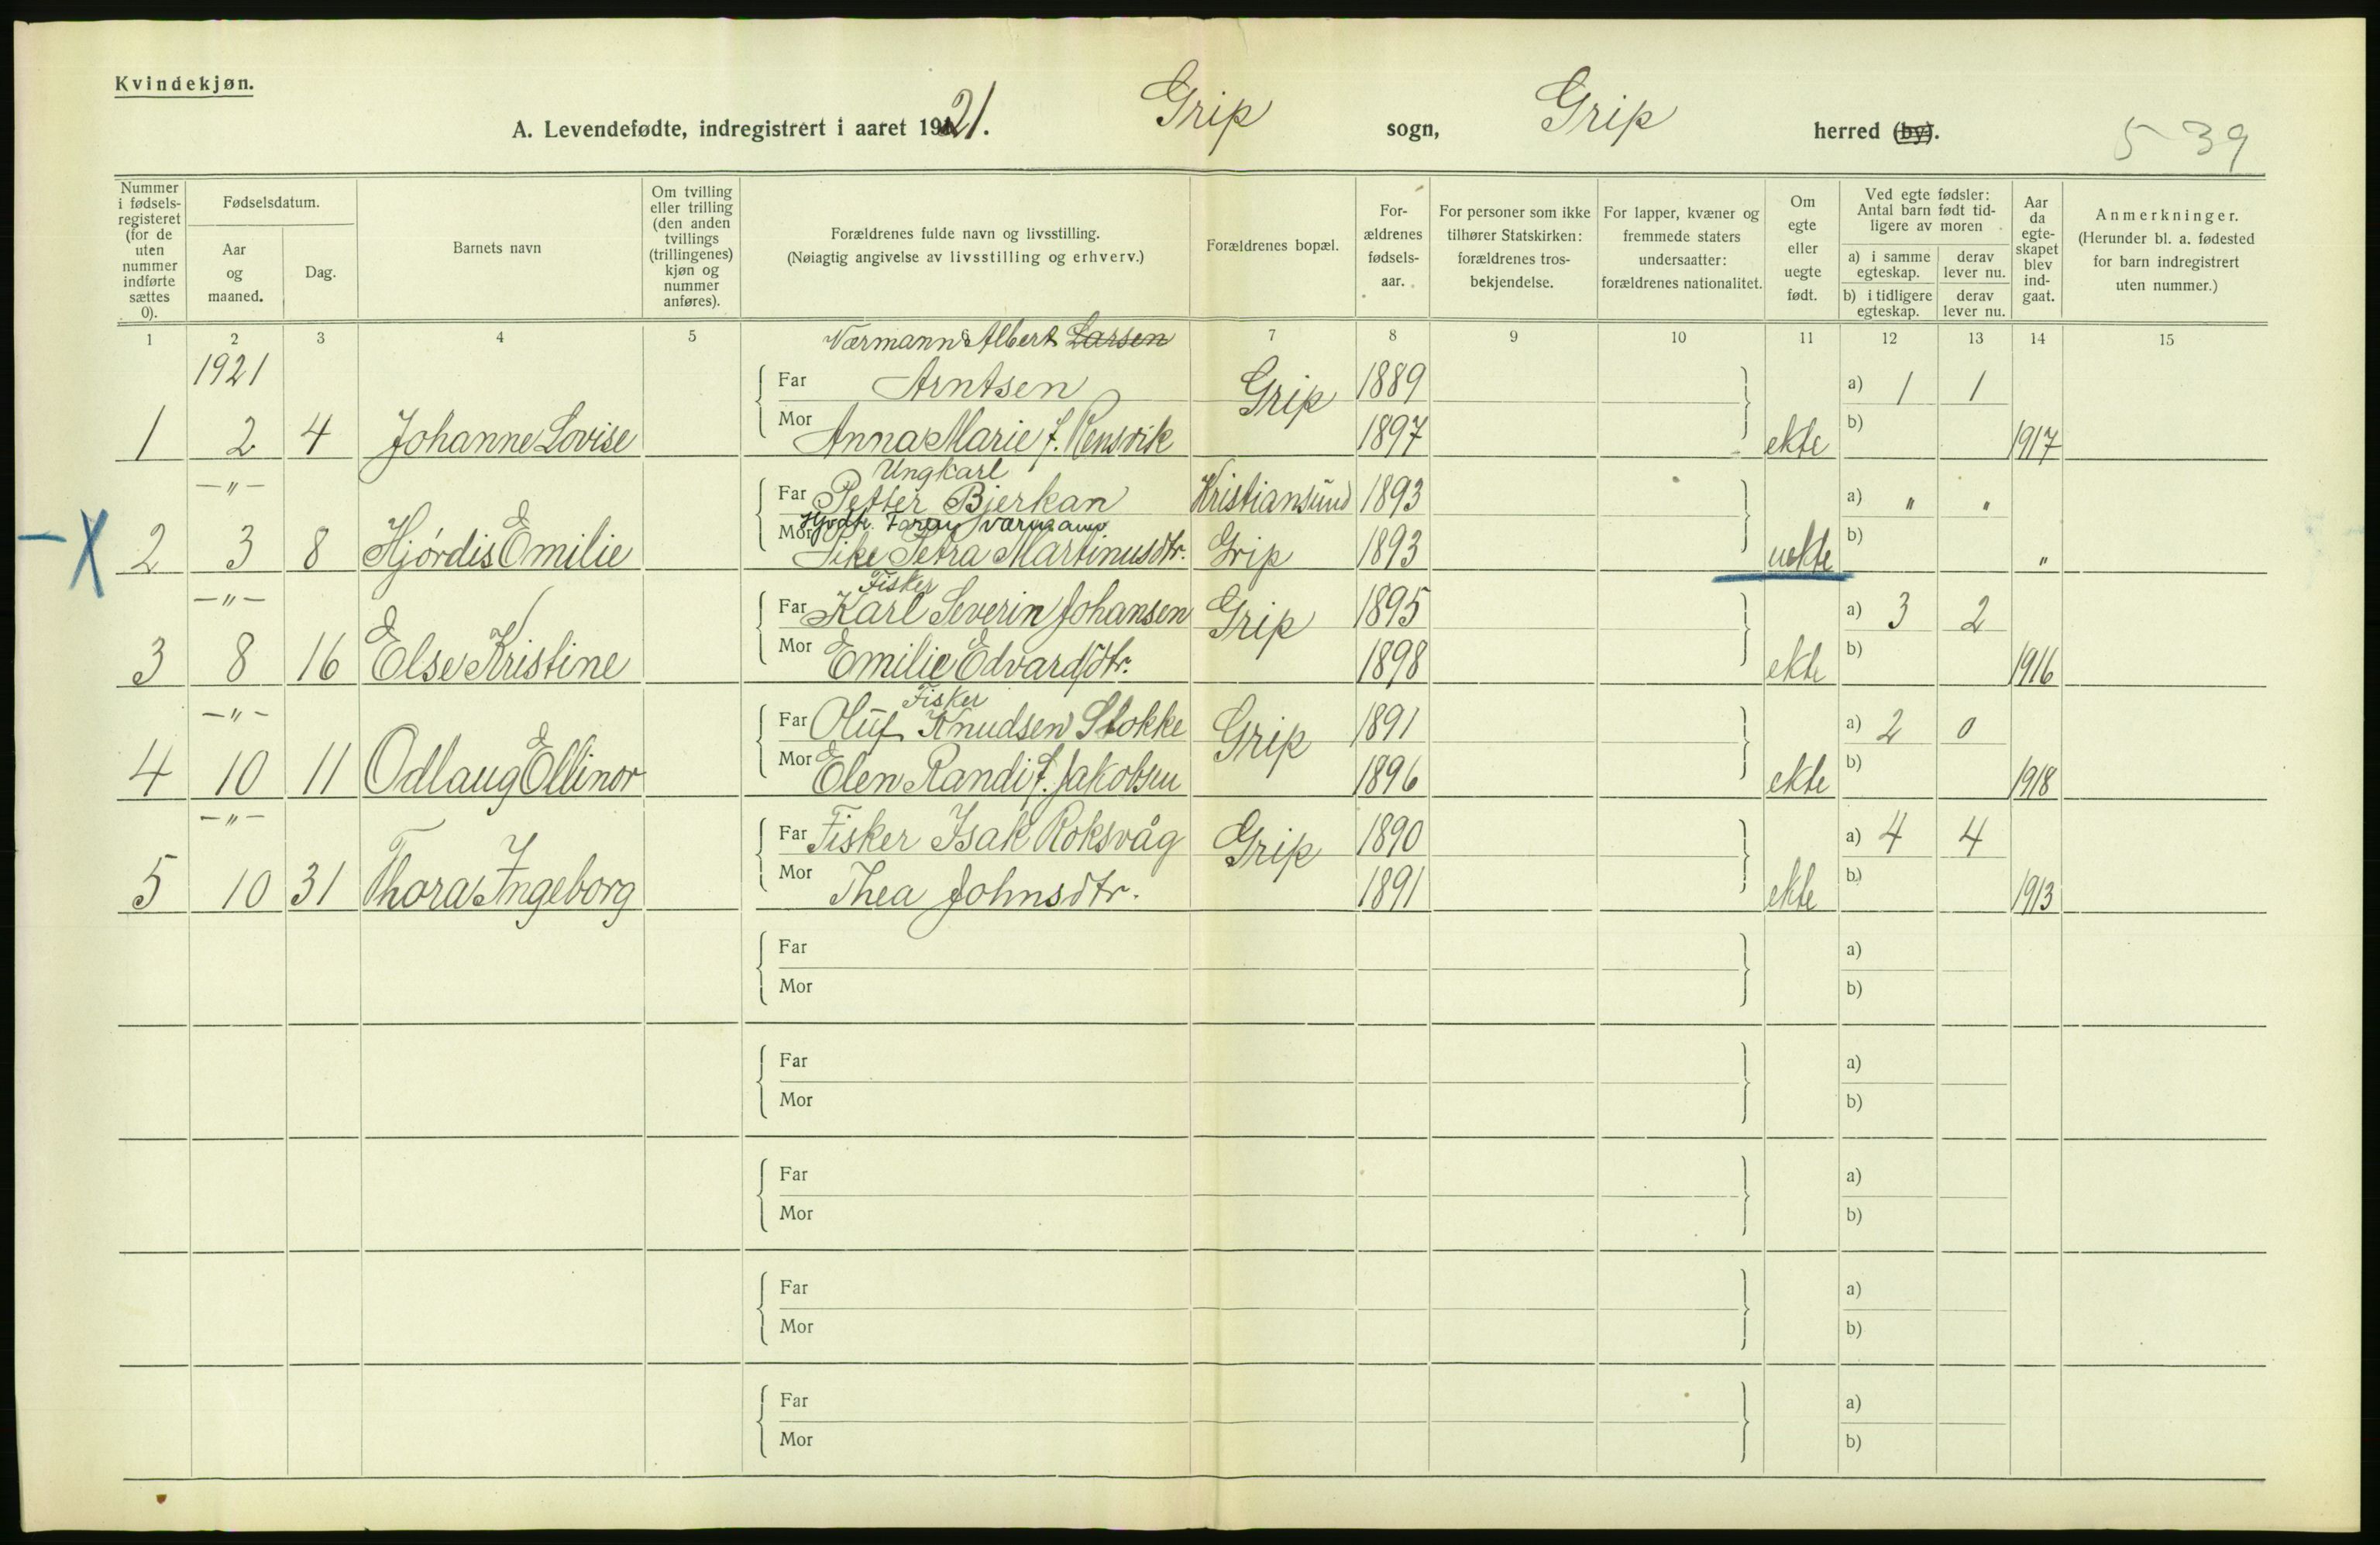 Kvindekjøn.
A. Levendefødte, indregistrert i aaret 1921. Grip sogn, Grip herred (by).
5 39
Nummer i fødselsregisteret (for de uten nummer indførte sættes 0).
Fødselsdatum.
Aar og maaned.
Dag.
Barnets navn
Om tvilling eller trilling (den anden tvillings (trillingenes) kjøn og nummer anføres).
Forældrenes fulde navn og livsstilling.
(Nøiagtig angivelse av livsstilling og erhverv.)
Forældrenes bopæl.
Forældrenes fødselsaar.
For personer som ikke tilhører Statskirken: forældrenes trosbekjendelse.
For lapper, kvæner og fremmede staters undersaatter: forældrenes nationalitet.
Om egte eller uegte født.
Ved egte fødsler: Antal barn født tidligere av moren
a) i samme egteskap.
derav lever nu.
b) i tidligere egteskap.
derav lever nu.
Aar da egteskapet blev indgaat.
Anmerkninger.
(Herunder bl. a. fødested for barn indregistrert uten nummer.)
1 2 3 4 5 7 8 9 10 11 12 13 14 15
Værmann Albert Larsen
1921 Far Arntsen Grip 1889 a) 1 1
1 2 4 Johanne Lovise Mor Anna Marie f. Rensvik 1897 ekte b) 1917
Ungkarl
—"— Far Petter Bjerkan Kristiansund 1893 a) " "
X 2 3 8 Hjørdis Emilie Mor Petra Martinusdtr. Grip 1893 uekte b) "
Fisker
—"— Far Karl Severin Johansen Grip 1895 a) 3 2
3 8 16 Else Kristine Mor Emilie Edvardsdtr. 1898 ekte b) 1916
Fisker
—"— Far Oluf Knudsen Stokke Grip 1891 a) 2 0
4 10 11 Odlaug Ellinor Mor Elen Randi f. Jakobsen 1896 ekte b) 1918
—"— Far Fisker Isak Roksvåg Grip 1890 a) 4 4
5 10 31 Thora Ingeborg Mor Thea Johnsdtr. 1891 ekte b) 1913
Far a)
Mor b)
Far a)
Mor b)
Far a)
Mor b)
Far a)
Mor b)
Far a)
Mor b)